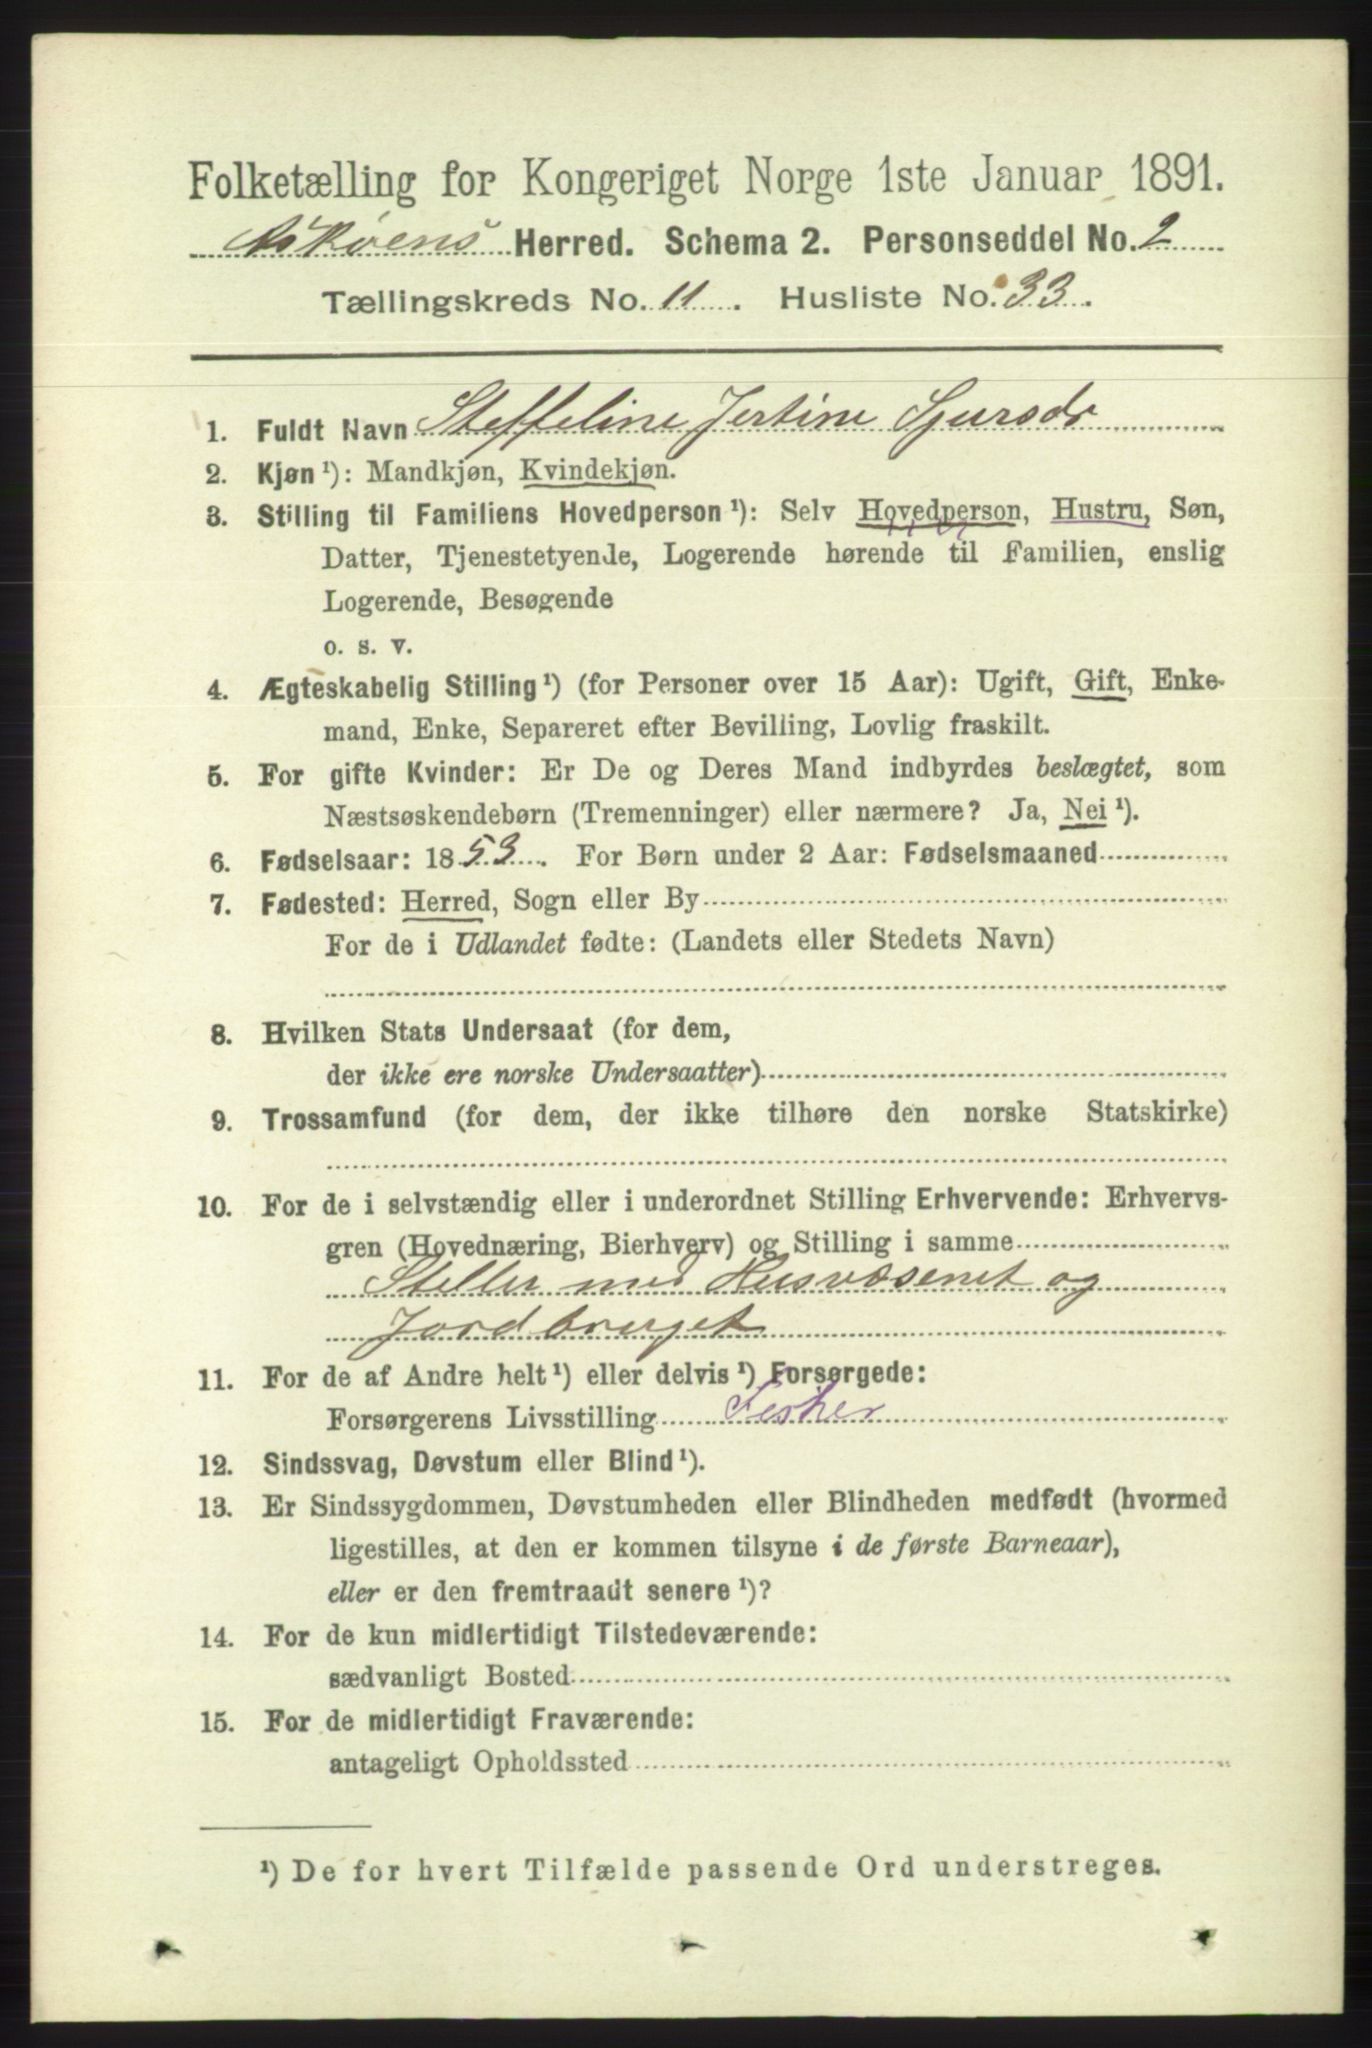 Folketælling for Kongeriget Norge 1ste Januar 1891.
Askøens Herred. Schema 2. Personseddel No. 2
Tællingskreds No. 11. Husliste No. 33.
1. Fuldt Navn Steffeline Jertine Sjursdr
2. Kjøn ¹): Mandkjøn, Kvindekjøn.
3. Stilling til Familiens Hovedperson ¹): Selv Hovedperson, Hustru, Søn,
Datter, Tjenestetyende, Logerende hørende til Familien, enslig
Logerende, Besøgende
o. s. v.
4. Ægteskabelig Stilling ¹) (for Personer over 15 Aar): Ugift, Gift, Enke-
mand, Enke, Separeret efter Bevilling, Lovlig fraskilt.
5. For gifte Kvinder: Er De og Deres Mand indbyrdes beslægtet, som
Næstsøskendebørn (Tremenninger) eller nærmere? Ja, Nei ¹).
6. Fødselsaar: 1853. For Børn under 2 Aar: Fødselsmaaned
7. Fødested: Herred, Sogn eller By
For de i Udlandet fødte: (Landets eller Stedets Navn)
8. Hvilken Stats Undersaat (for dem,
der ikke ere norske Undersaatter)
9. Trossamfund (for dem, der ikke tilhøre den norske Statskirke)
10. For de i selvstændig eller i underordnet Stilling Erhvervende: Erhvervs-
gren (Hovednæring, Bierhverv) og Stilling i samme
Steller med Husvæsenet og
Jordbruget
11. For de af Andre helt ¹) eller delvis ¹) Forsørgede:
Forsørgerens Livsstilling Fisker
12. Sindssvag, Døvstum eller Blind ¹).
13. Er Sindssygdommen, Døvstumheden eller Blindheden medfødt (hvormed
ligestilles, at den er kommen tilsyne i de første Barneaar),
eller er den fremtraadt senere ¹)?
14. For de kun midlertidigt Tilstedeværende:
sædvanligt Bosted
15. For de midlertidigt Fraværende:
antageligt Opholdssted
¹) De for hvert Tilfælde passende Ord understreges.